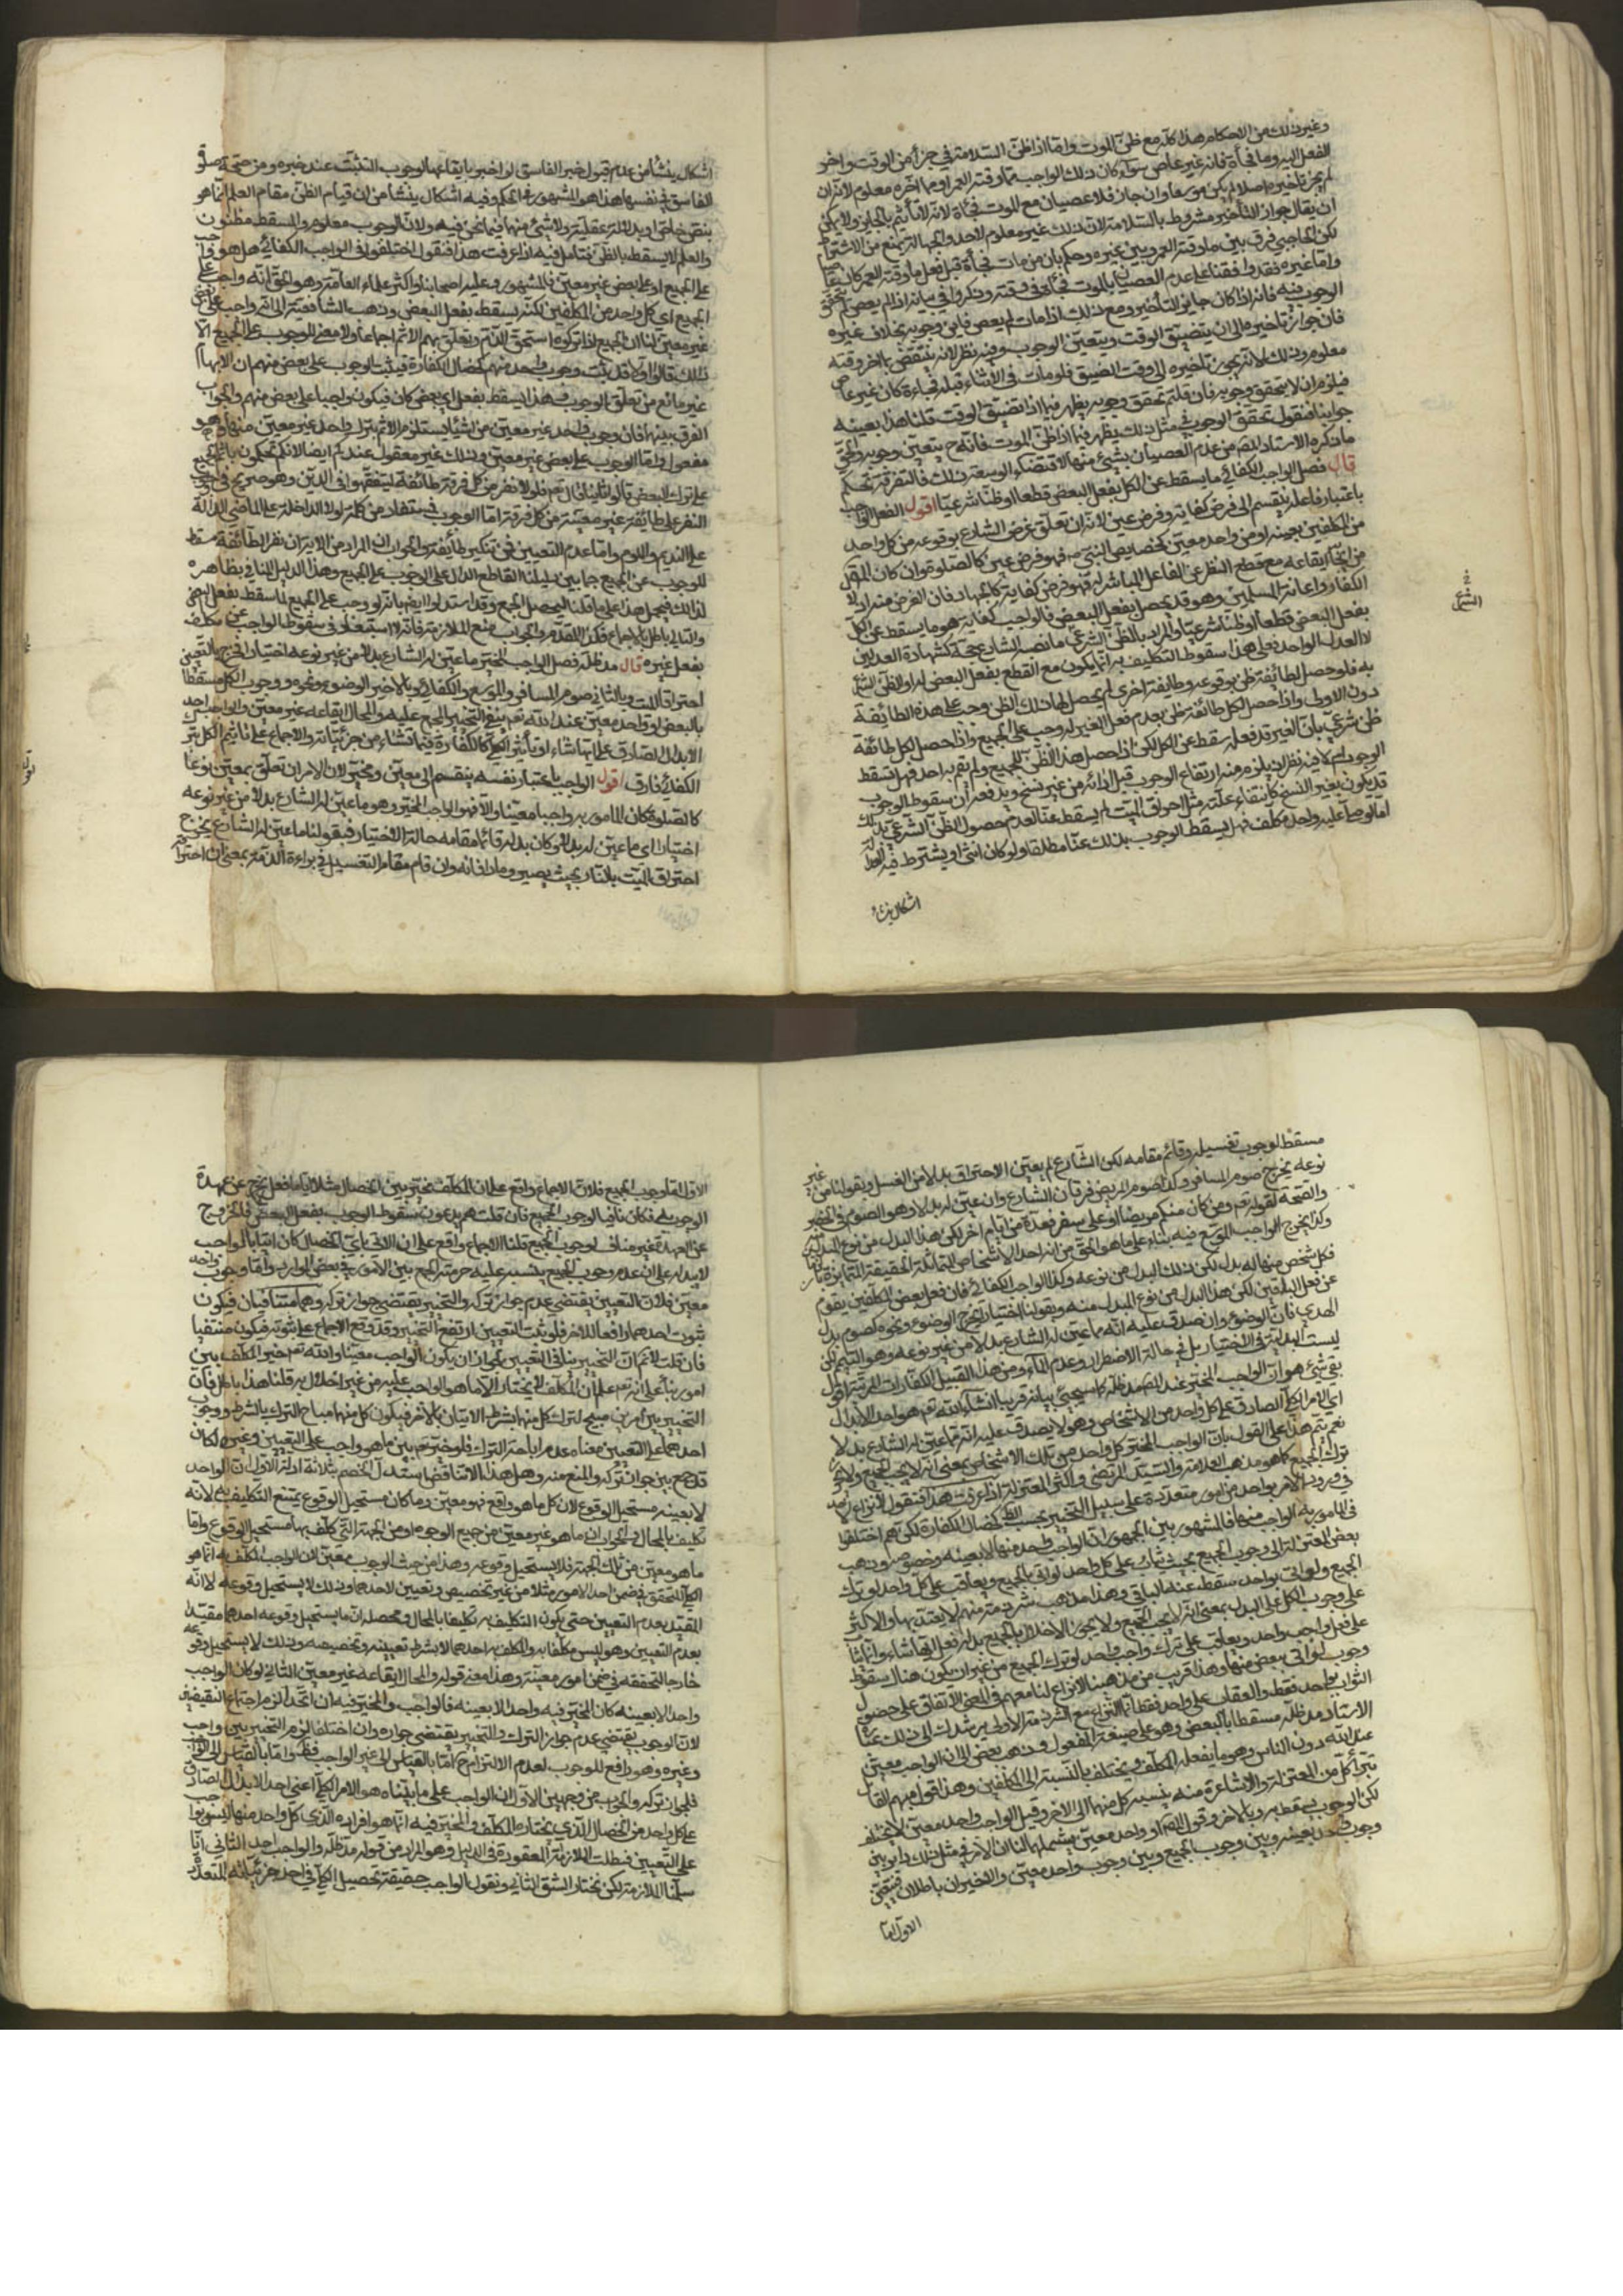 وغير ذلك من الاحكام هذا كله مع ظن الموت واما اذا ظن السلامة في جزء من الوقت واخر
الفعل اليه ومات فجأة فانه غير عاص سواء كان ذلك الواجب مما وقته العمر او مما اخره معلوم لانه ان
لم يجز تاخيره اصلا لم يكن موسعا وان جاز فلا عصيان مع الموت فجأة لانه لا تأثيم بالجايز ولا يمكن
ان يقال جواز التأخير مشروط بالسلامة لان ذلك غير معلوم لاحد والجهالة تمنع من الاشتراط
لكن الحاجبي فرق بين ما وقته العمر وبين غيره وحكم بان من مات فجأة قبل فعل ما وقته العمر كان عاصيا
واما غيره فقد وافقنا على عدم العصيان بالموت فجأة في وقته وذكروا في بيانه اذ لم يعص لم يتحقق
الوجوب فيه فانه اذا كان جايز التأخير ومع ذلك اذا مات لم يعص فاين وجوبه بخلاف غيره
فان جواز تأخيره الى ان يتضيق الوقت ويتعين الوجوب وفيه نظر لانه ينتقض بما اخر وقته
معلوم وذلك لانه يجوز تأخيره الى وقت الضيق فلو مات في الاثناء قبله فجاءة كان غير عاص
فيلزم ان لا يتحقق وجوبه فان قلتم تحقق وجوبه يظهر فيما اذا تضيق الوقت قلنا هذا بعينه
جوابنا فنقول تحقق الوجوب في مثل ذلك يظهر فيما اذا ظن الموت فانه ح يتعين وجوبه والحق
ما ذكره الاستاد المص من عدم العصيان بشيء منها لاقتضاء الوسعة ذلك فالتفرقة تحكم
قال فصل الواجب الكفائي ما يسقط عن الكل بفعل البعض قطعا او ظنا شرعيا اقول الفعل الواجب
باعتبار فاعله ينقسم الى فرض كفاية وفرض عين لانه ان تعلق غرض الشارع بوقوعه من كل واحد
من المكلفين بعينه او من واحد معين كخصايص النبي ص فهو فرض عين كالصلوة وان كان المقصود
من ايجابه ايقاعه مع قطع النظر عن الفاعل المباشر له فهو فرض كفاية كالجهاد فان الغرض منه اذلال
الكفار واعانة المسلمين وهو قد يحصل بفعل البعض فالواجب كفاية هو ما يسقط عن الكل
بفعل البعض قطعا او ظنا شرعيا والمراد بالظن الشرعي ما نصبه الشارع حجة كشهادة العدلين
لا العدل الواحد فعلى هذا سقوط التكليف به انما يكون مع القطع بفعل البعض له او الظن الشرعي
به فلو حصل لطائفة ظن بوقوعه وطائفة اخرى لم يحصل لها ذلك الظن وجب على هذه الطائفة
دون الاولى واذا حصل لكل طائفة ظن بعدم فعل الغير له وجب على الجميع واذا حصل لكل طائفة
ظن شرعي بان الغير قد فعله سقط عن الكل لكن اذا حصل هذا الظن للجميع ولم يقم به احد فهل يسقط
الوجوب ام لا فيه نظر اذ يلزم منه ارتفاع الوجوب قبل ادائه من غير نسخ ويدفعه ان سقوط الوجوب
قد يكون بغير النسخ كانتفاء علته مثل احراق الميت لم يسقط عنا لعدم حصول الظن الشرعي بذلك
اما لو صلى عليه واحد مكلف فهل يسقط الوجوب بذلك عنا مطلقا ولو كان انثى او يشترط فيه العدالة
اشكال ينشأ
في
الشرع
اشكال ينشأ من عدم قبول خبر الفاسق لو اخبر بايقاعها لوجوب التثبت عند خبره ومن صحة صلوة
الفاسق في نفسها هذا هو المشهور في الحكم وفيه اشكال ينشأ من ان قيام الظن مقام العلم انما هو
بنص خاص او بدلالة عقلية ولا شيء منهما فيما نحن فيه ولان الوجوب معلوم والمسقط مظنون
والعلم لا يسقط بالظن فتامل فيه اذا عرفت هذا فنقول اختلفوا في الواجب الكفائي هل هو واجب
على الجميع او على بعض غير معين فالمشهور وعليه اصحابنا واكثر علماء العامة وهو الحق انه واجب على
الجميع اي كل واحد من المكلفين لكنه يسقط بفعل البعض وذهب الشافعية الى انه واجب على بعض
غير معين لنا ان الجميع اذا تركوه استحق الذم وتعلق بهم الاثم اجماعا ولا معنى للوجوب على الجميع الا
ذلك قالوا اولا قد يثبت وجوب واحد منهم كخصال الكفارة فيثبت الوجوب على بعض منهم اذ الابهام
غير مانع من تعلق الوجوب في هذا يسقط بفعل اي بعض كان فيكون واجبا على بعض منهم والجواب
الفرق بينهما فان وجوب واحد غير معين من اشياء يستلزم الاثم بترك واحد غير معين منها وهو
معقول واما الوجوب على بعض غير معين وذلك غير معقول عندكم ايضا لانكم تحكمون باثم الجميع
على ترك البعض قالوا ثانيا قال تعم فلولا نفر من كل فرقة طائفة ليتفقهوا في الدين وهو صريح في وجوب
النفر على طائفة غير معينة من كل فرقة اما الوجوب فيستفاد من كلمة لولا الداخلة على الماضي الدالة
على التنديم واللوم واما عدم التعيين فمن تنكير طائفة والجواب ان المراد من الآية ان نفر الطائفة مسقط
للوجوب عن الجميع جمعا بين دليلنا القاطع الدال على الوجوب على الجميع وهذا الدليل المنافي بظاهره
لذلك فيحمل هذا على ما قلنا ليحصل الجمع وقد استدلوا ايضا بانه لو وجب على الجميع لما سقط بفعل البعض
والتالي باطل بالاجماع فكذا المقدم والجواب منع الملازمة فانه لا استبعاد في سقوط الواجب عن مكلف
بفعل غيره قال مد ظله فصل الواجب المخير ما عين له الشارع بدلا من غير نوعه اختيارا فخرج بالتعيين
احتراق الميت وبالثاني صوم المسافر والموسع والكفائي وبالاخير الوضوء ونحوه ووجوب الكل مسقطا
بالبعض او واحد معين عند الله تعم ينفيه التخيير المجمع عليه والمحال ايقاعه غير معين والواجب احد
الابدال الصادق على ايها شاء او تأثير الكلي كالكفارة فيما تشاء من جزئياته والاجماع على تاثيم الكل بترك
الكفائي فارق اقول الواجب باعتبار نفسه ينقسم الى معين ومخير لان الامر ان تعلق بمعين نوعا
كالصلوة كان المامور به واجبا معينا والا فهو الواجب المخير وهو ما عين له الشارع بدلا من غير نوعه
اختيارا اي ما عين له بدل وكان بدله قائما مقامه حالة الاختيار فبقولنا ما عين له الشارع يخرج
احتراق الميت بالنار بحيث يصير رمادا فانه وان قام مقام التغسيل في براءة الذمة بمعنى ان احتراقه
مسقط لوجوب تغسيله وقائم مقامه لكن الشارع لم يعين الاحتراق بدلا من الغسل وبقولنا من غير
نوعه يخرج صوم المسافر وكذا صوم المريض فرقا ان الشارع وان عين له بدلا وهو الصوم في الحضر
والصحة لقوله تعم ومن كان منكم مريضا او على سفر فعدة من ايام اخر لكن هذا البدل من نوع المبدل منه
وكذا يخرج الواجب الموسع فيه بناء على ما هو الحق من انه احد الاشخاص المتماثلة الحقيقة المتمايزة بالزمان
فكل شخص منها له بدل لكن ذلك البدل من نوعه وكذا الواجب الكفائي فان فعل بعض المكلفين يقوم
عن فعل الباقين لكن هذا البدل من نوع المبدل منه وبقولنا اختيارا يخرج الوضوء ونحوه كصوم بدل
الهدي فان الوضوء وان صدق عليه انه مما عين له الشارع بدلا من غير نوعه وهو التيمم لكن
ليست البدلية في الاختيار بل في حالة الاضطرار وعدم الماء ومن هذا القبيل الكفارات المرتبة اقول
بقي شيء هو ان الواجب المخير عند المص مد ظله كما سيجيء بيانه قريبا انشاء الله تعم هو احد الابدال
اي الامر الكلي الصادق على كل واحد من الاشخاص وهو لا يصدق عليه انه مما عين له الشارع بدلا
نعم يتم هذا على القول بان الواجب المخير كل واحد من تلك الاشخاص بمعنى انه لا يجب الجميع ولا يجوز
ترك الجميع كما هو مذهب العلامة والسيد المرتضى واكثر المعتزلة اذا عرفت هذا فنقول لا نزاع لاحد
في ورود الامر بواحد من امور متعددة على سبيل التخيير بحسب الظ كخصال الكفارة لكنهم اختلفوا
في المامور به الواجب منها فالمشهور بين الجمهور ان الواجب واحد منها لا بعينه وخصوصه وذهب
بعض المعتزلة الى وجوب الجميع بحيث يثاب على كل واحد لو اتى بالجميع ويعاقب على كل واحد لو ترك
الجميع ولو اتى بواحد سقط عنه الباقي وهذا مذهب شرذمة منهم لا يعتد بها والاكثر
على وجوب الكل على البدل بمعنى انه لا يجب الجميع ولا يجوز الاخلال بالجميع بل له فعل ايها شاء وانما يثاب
على فعل واجب واحد ويعاقب على ترك واجب واحد لو ترك الجميع من غير ان يكون هناك سقوط
وجوب لو اتى ببعض منها وهذا قريب من مذهبنا لا نزاع لنا معهم في المعنى للاتفاق على حصول
الثواب بواحد فقط والعقاب على واحد فقط انما النزاع مع الشرذمة الاولى يرشدك الى ذلك عبارة
الاستاد مد ظله مسقطا بالبعض وهو على صيغة المفعول وذهب بعض الى ان الواجب معين
عند الله دون الناس وهو ما يفعله المكلف ويختلف بالنسبة الى المكلفين وهذا قول مبهم القائل
تبرأ كل من المعتزلة والاشاعرة منه ينسبه كل منهما الى الاخر وقيل الواجب واحد معين لا يختلف
لكن الوجوب يسقط به وبالاخر وقول المص او واحد معين يشملهما لنا ان الامر في مثل ذلك داير بين
وجوب واحد بعينه وبين وجوب الجميع وبين وجوب واحد معين والاخيران باطلان فتعين
الاول اما
الاول اما وجوب الجميع فلان الاجماع واقع على ان المكلف مخير بين الخصال مثلا ايا ما فعل يخرج عن عهدة
الوجوب به فكان نافيا لوجوب الجميع فان قلت هم يدعون سقوط الوجوب بفعل البعض فالخروج
عن العهدة غير مناف لوجوب الجميع قلنا الاجماع واقع على ان الاتي باي الخصال كان اتيا بالواجب
لابدله على ان عدم وجوب الجميع ينسبه عليه حرمة الجمع بين الامور في بعض الموارد واما وجوب واحد
معين فلان التعيين يقتضي عدم جواز تركه والتخيير يقتضي جواز تركه وهما متنافيان فيكون
ثبوت احدهما رافعا للاخر فلو ثبت التعيين ارتفع التخيير وقد وقع الاجماع على ثبوته فيكون منتفيا
فان قلت لا نم ان التخيير ينافي التعيين لجواز ان يكون الواجب معينا والله تعم خير المكلف بين
امور بناء على انه تعم علم ان المكلف لا يختار الا ما هو الواجب عليه من غير اخلال به قلنا هذا باطل فان
التخيير بين امرين مبيح لترك كل منهما بشرط الاتيان بالاخر فيكون كل منهما مباح الترك بالشرط ووجوب
احدهما على التعيين معناه عدم اباحة الترك فلو خير تعم بين ما هو واجب على التعيين وغيره لكان
قد جمع بين جواز تركه والمنع منه وهل هذا الا تناقض استدل الخصم بثلاثة ادلة الاول ان الواحد
لا بعينه مستحيل الوقوع لان كل ما هو واقع فهو معين وما كان مستحيل الوقوع يمتنع التكليف به لانه
تكليف بالمحال والجواب ان ما هو غير معين من جميع الوجوه او من الجهة التي كلف بها مستحيل الوقوع واما
ما هو معين من تلك الجهة فلا يستحيل وقوعه وهذا من حيث الوجوب معين لان الواجب المكلف به انما هو
الكلي المتحقق في ضمن احد الامور مثلا من غير تخصيص وتعيين لاحدهما وذلك لا يستحيل وقوعه لا انه
المقيد بعدم التعيين حتى يكون التكليف به تكليفا بالمحال ومحصله ان ما يستحيل وقوعه احدهما مقيدا
بعدم التعيين وهو ليس مكلفا به والمكلف به احدهما لا بشرط تعيينه وتخصيصه وذلك لا يستحيل وقوعه
خارجا لتحققه في ضمن امور معينة وهذا معنى قوله والمحال ايقاعه غير معين الثاني لو كان الواجب
واحدا لا بعينه كان المخير فيه واحدا لا بعينه فالواجب والمخير فيه ان اتحدا لزم اجتماع النقيضين
لان الوجوب يقتضي عدم جواز الترك والتخيير يقتضي جوازه وان اختلفا لزم التخيير بين واجب
وغيره وهو رافع للوجوب لعدم الالتزام ح اما بالقياس الى غير الواجب فظ واما بالقياس الى الواجب
فلجواز تركه والجواب من وجهين الاول ان الواجب على ما بيناه هو الامر الكلي اعني احد الابدال الصادق
على كل واحد من الخصال الذي يختاره المكلف والمخير فيه انما هو افراده الذي كل واحد منها ليس بواجب
على التعيين فبطلت الملازمة المعقودة في الدليل وهو المراد من قوله مد ظله والواجب احد الثاني انا
سلمنا الملازمة لكن نختار الشق الثاني ونقول الواجب حقيقة تحصيل الكلي في احد جزئياته المتعددة